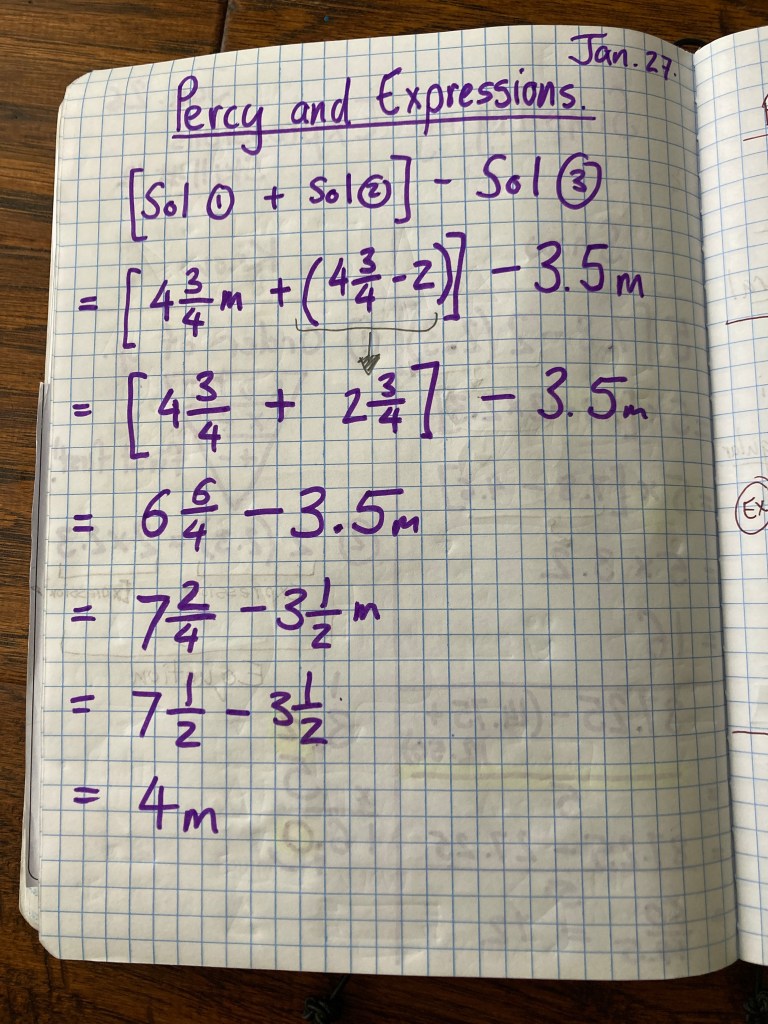 Jan. 27.
Percy and Expressions.
[Sol ① + Sol ②] - Sol ③
= [4 3/4 m + (4 3/4 - 2)] - 3.5m
= [4 3/4 + 2 3/4] - 3.5m
= 6 6/4 - 3.5m
= 7 2/4 - 3 1/2 m
= 7 1/2 - 3 1/2
= 4m
Ex